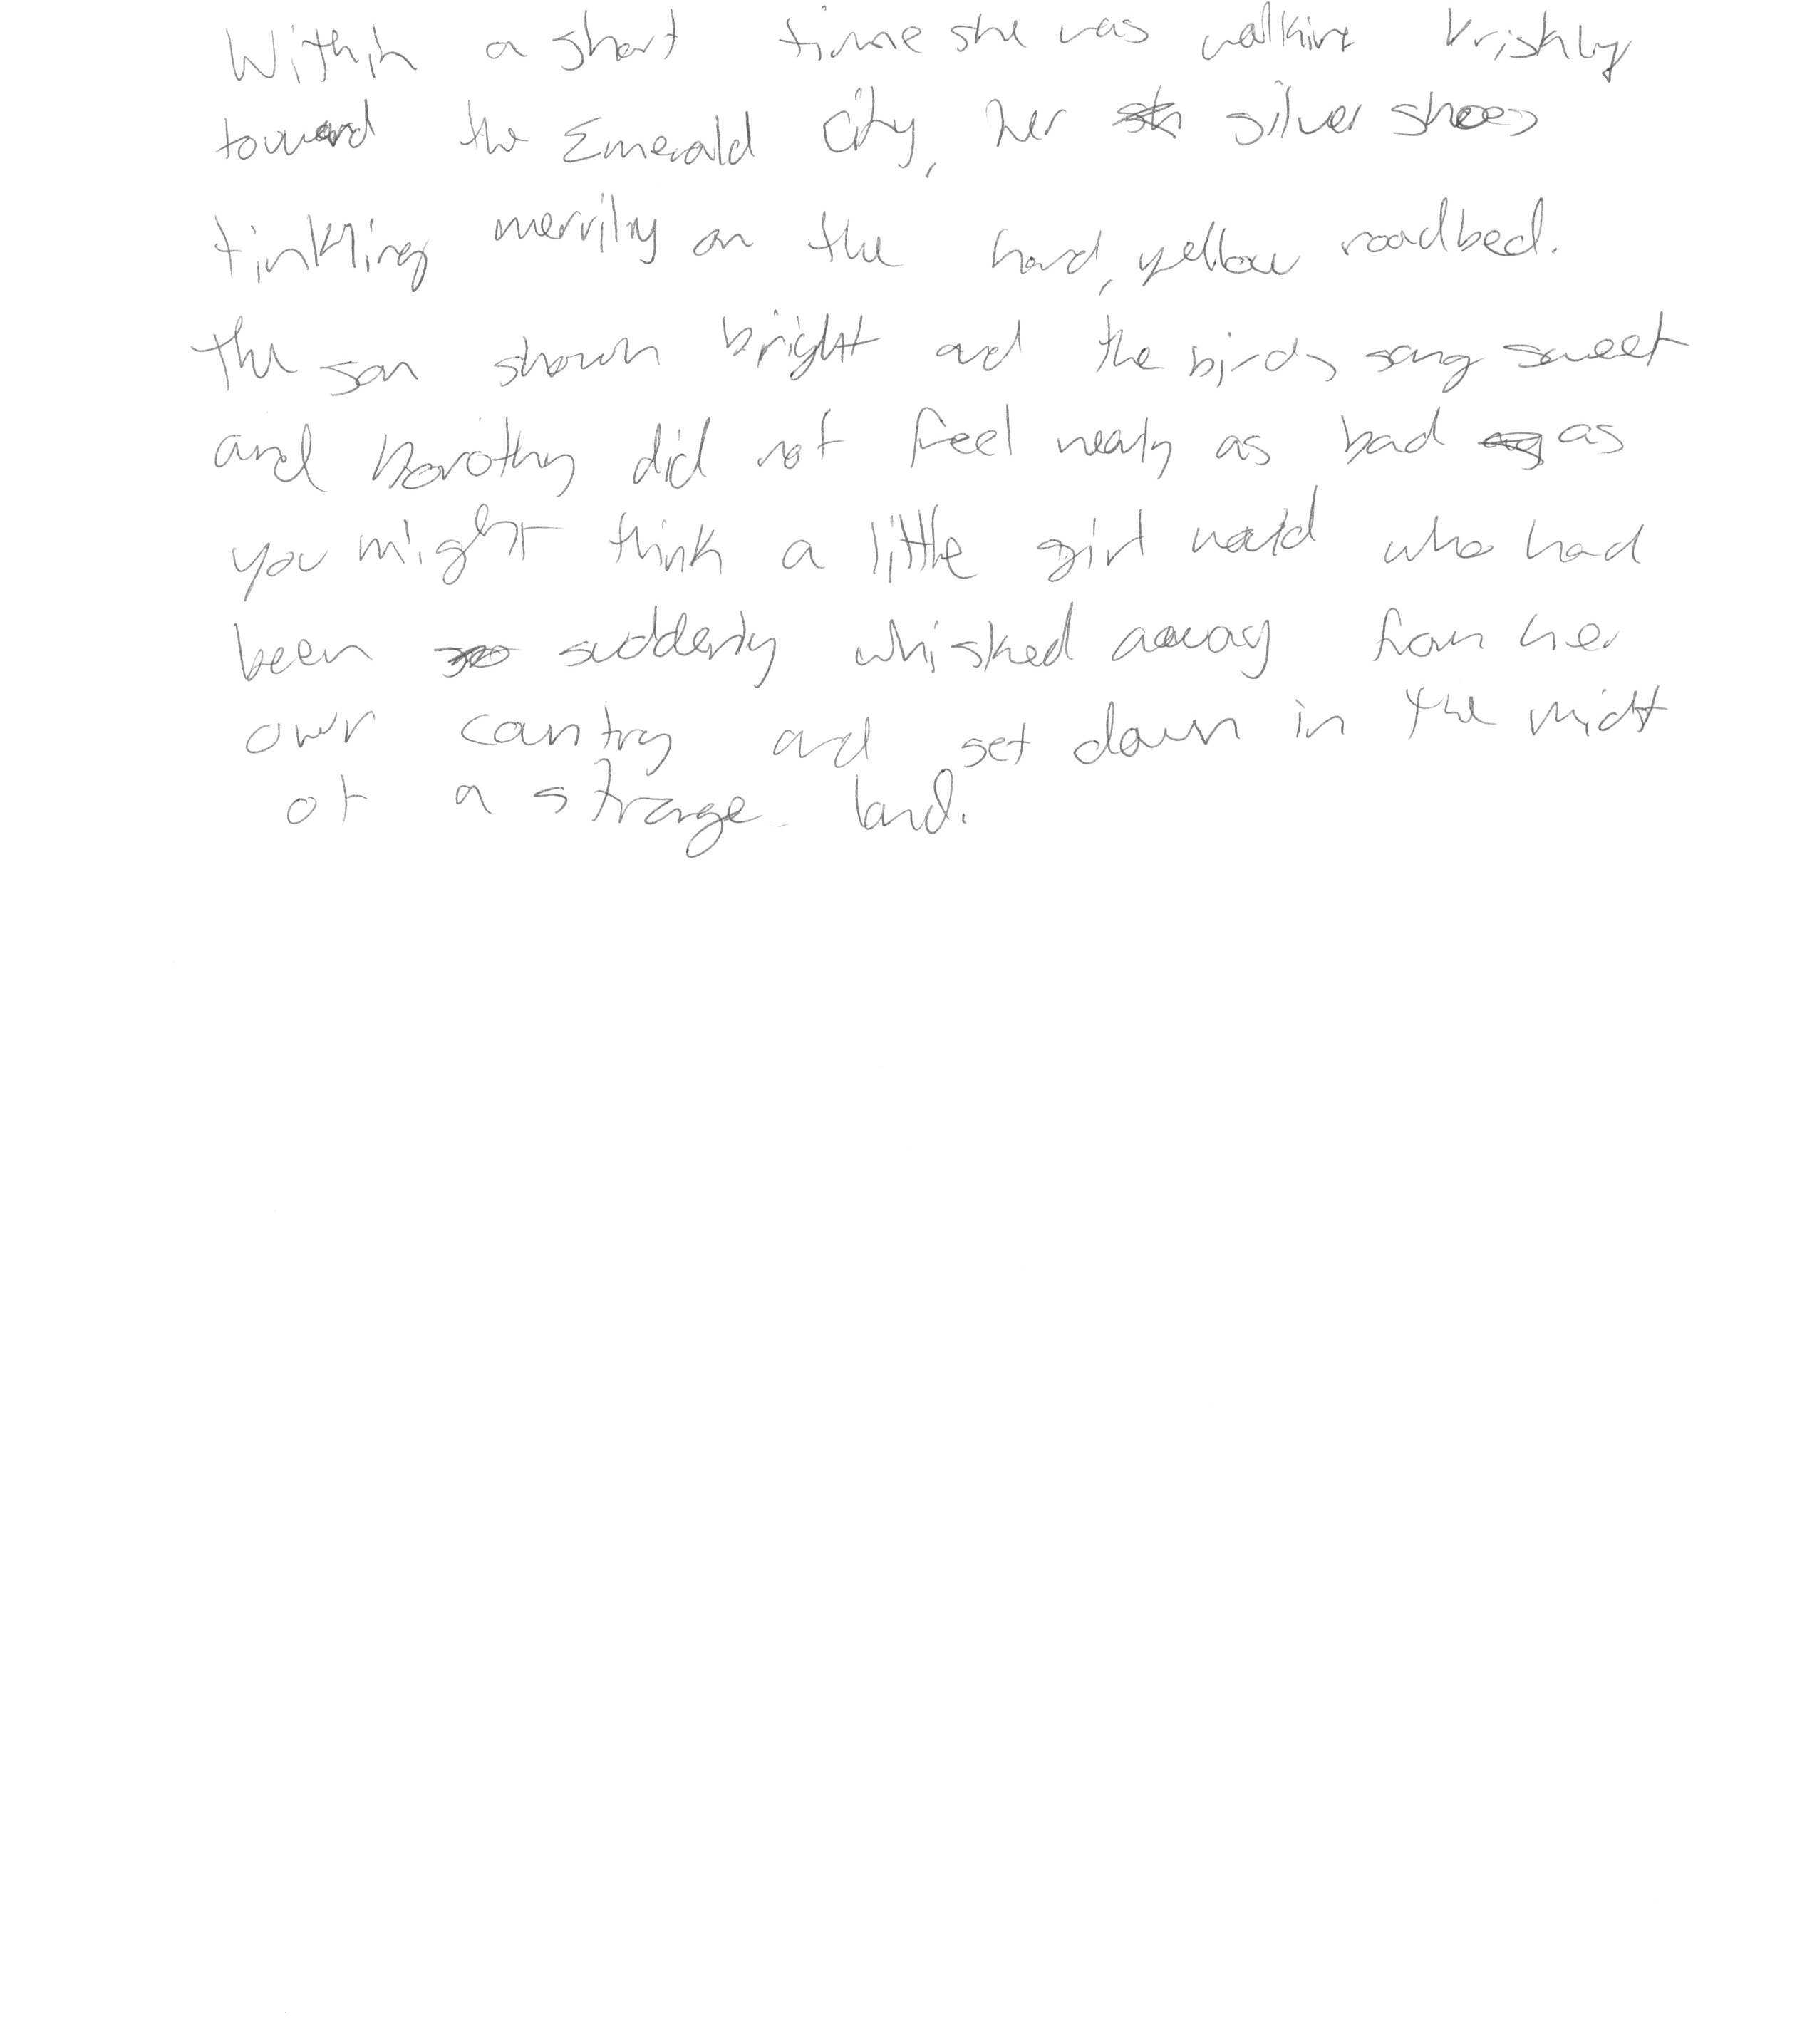 Within a short time she was walking briskly
toward the Emerald City, her silver shoes
tinkling merrily on the hard, yellow roadbed.
The son shown bright and the birds sang sweet
and Dorothy did not feel nearly as bad as
you might think a little girl would who had
been suddenly whisked away from her
own country and set down in the midst
of a strange land.